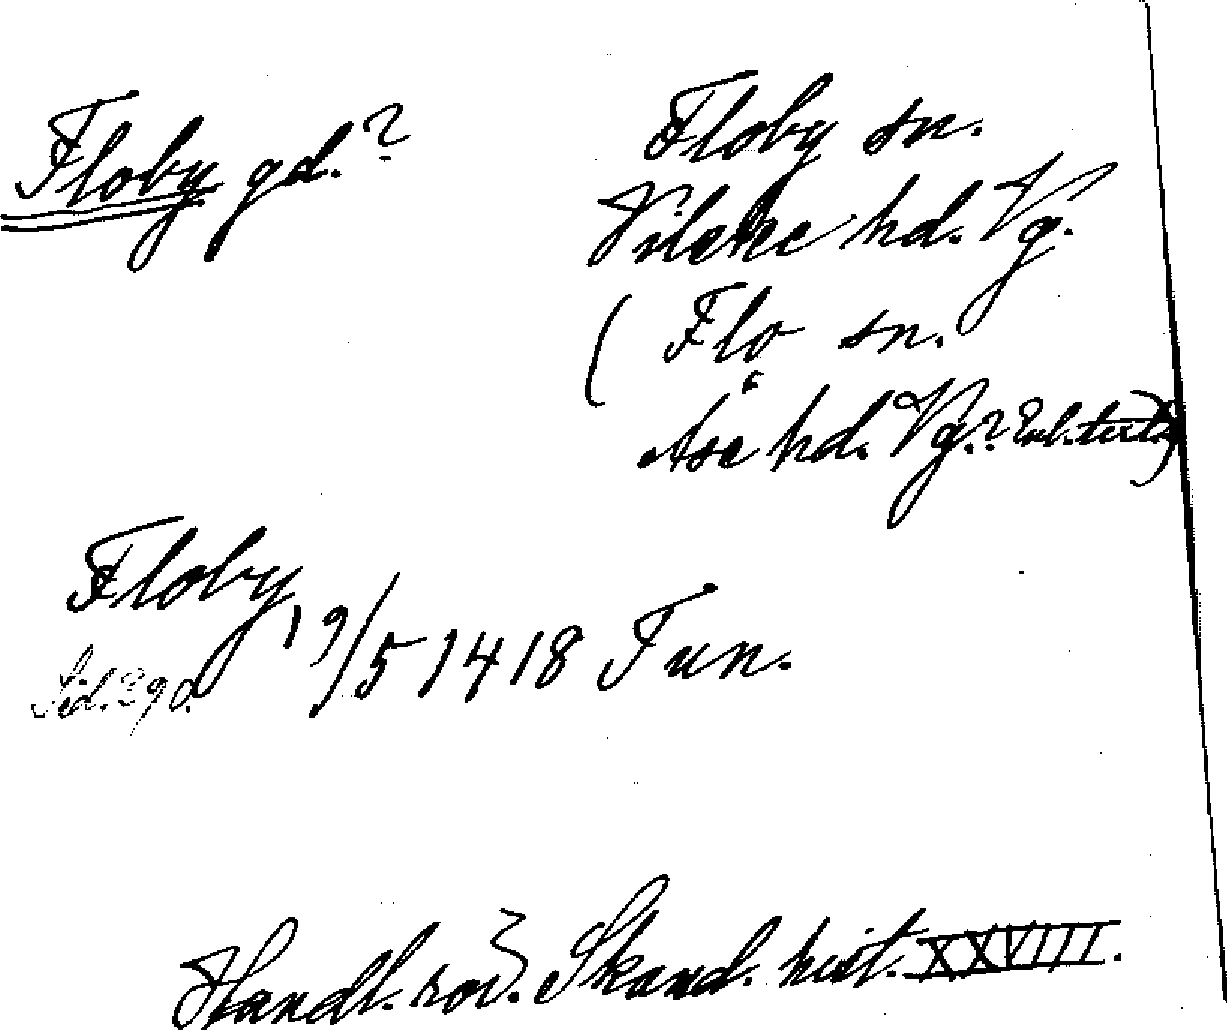 Floby gd.? Floby sn.
Vilske hd. Vg.
( Flo sn.
Åse hd. Vg.?
Floby
19/5 1418 Tun.
Sid. 290.
Handl. rör. Skand. hist. XXVIII.